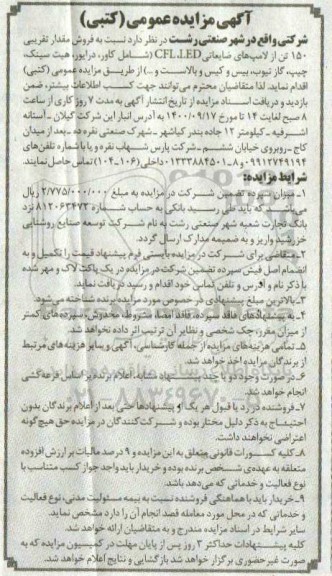 آگهی مزایده عمومی (کتبی)
شرکتی واقع در شهر صنعتی رشت در نظر دارد نسبت به فروش مقدار تقریبی
۱۵۰ تن از لامپ‌های ضایعاتی CFL ،LED (شامل کاور، درایور، هیت سینک،
چیپ، گاز تیوب، بیس و کیس و بالاست و ...) از طریق مزایده عمومی (کتبی)
اقدام نماید. لذا متقاضیان محترم می‌توانند جهت کسب اطلاعات بیشتر، ضمن
بازدید و دریافت اسناد مزایده از تاریخ انتشار آگهی به مدت ۷ روز کاری از ساعت
۸ صبح لغایت ۱۴ تا مورخ ۱۴۰۰/۰۹/۱۷ به آدرس انبار این شرکت گیلان ـ آستانه
اشرفیه ـ کیلومتر ۱۲ جاده بندر کیاشهر ـ شهرک صنعتی نقره ده ـ بعد از میدان
کاج ـ روبروی خیابان ششم ـ شرکت پارس شهاب نقره و یا با شماره تلفن‌های
۰۹۹۱۲۷۴۹۱۹۴ و ۸ـ۰۱۳۳۳۸۸۴۵۰۱ داخلی (۱۰۶ـ۱۰۴) تماس حاصل نمایند.
شرایط مزایده:
۱ـ میزان سپرده تضمین شرکت در مزایده به مبلغ ۲/۷۷۵/۰۰۰/۰۰۰ ریال
می‌باشد که باید طی رسید بانکی به حساب شماره ۸۱۲۰۶۳۴۷۲ نزد
بانک تجارت شعبه شهر صنعتی رشت به نام شرکت توسعه صنایع روشنایی
خزرشید واریز و به ضمیمه مدارک ارسال گردد.
۲ـ متقاضی برای شرکت در مزایده بایستی فرم پیشنهاد قیمت را تکمیل و به
انضمام اصل فیش سپرده تضمین شرکت در مزایده در یک پاکت لاک و مهر شده
با ذکر نام و آدرس و تلفن تماس خود اقدام و رسید دریافت نماید.
۳ـ بالاترین مبلغ پیشنهادی در خصوص مورد مزایده برنده شناخته می‌شود.
۴ـ به پیشنهادهای فاقد سپرده، فاقد امضا، مشروط، مخدوش، سپرده‌های کمتر
از میزان مقرر، چک شخصی و نظایر آن ترتیب اثر داده نخواهد شد.
۵ـ تمامی هزینه‌های مزایده از جمله کارشناسی، آگهی و سایر هزینه‌های مرتبط
از برندگان مزایده اخذ خواهد شد.
۶ـ در صورت وجود دو یا چند پیشنهاد مشابه اعلام برنده بر اساس قرعه‌کشی
انجام خواهد شد.
۷ـ فروشنده در رد یا قبول هر یک از پیشنهادها حتی بعد از اعلام برندگان بدون
احتیاج به ذکر دلیل مختار بوده و شرکت‌کنندگان در مزایده حق هیچ‌گونه
اعتراضی نخواهند داشت.
۸ـ کلیه کسورات قانونی متعلق به این مزایده و ۹ درصد مالیات بر ارزش افزوده
متعلقه به عهده‌ی شخص برنده بوده و خریدار باید واجد جواز کسب متناسب با
نوع فعالیت و خدماتی که می‌دهد باشد.
۹ـ خریدار باید با هماهنگی فروشنده نسبت به بیمه مسئولیت مدنی، نوع فعالیت
و خدماتی که در محل مورد معامله قصد انجام آن را دارد مشخص نماید.
سایر شرایط در اسناد مزایده مندرج و به متقاضیان ارائه خواهد شد.
کلیه پیشنهادات حداکثر ۳ روز پس از پایان مهلت در کمیسیون مزایده که به
صورت غیرحضوری برگزار خواهد شد بازگشایی و نتایج اعلام خواهد شد.